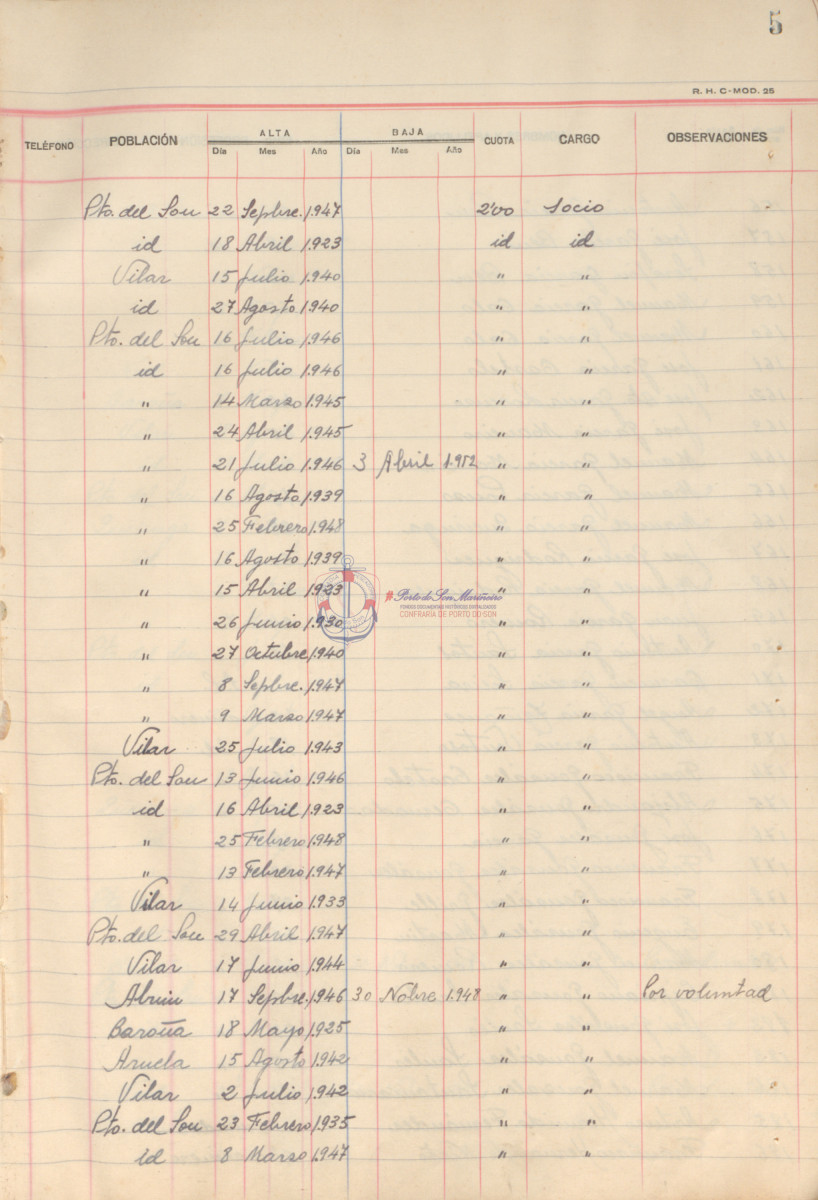 5
R. H. C-MOD. 25
TELÉFONO POBLACIÓN ALTA BAJA CUOTA CARGO OBSERVACIONES
Día Mes Año Día Mes Año
Pto. del Son 22 Sepbre. 1.947 2'00 Socio
id 18 Abril 1.923 id id
Vilar 15 Julio 1.940 " "
id 27 Agosto 1.940 " "
Pto. del Son 16 Julio 1.946 " "
id 16 Julio 1.946 " "
" 14 Marzo 1.945 " "
" 24 Abril 1.945 " "
" 21 Julio 1.946 3 Abril 1.952 " "
" 16 Agosto 1.939 " "
" 25 Febrero 1.948 " "
" 16 Agosto 1.939 " "
" 15 Abril 1.923 " "
Porto do Son Mariñeiro
FONDOS DOCUMENTAIS HISTÓRICOS DIXITALIZADOS
CONFRARÍA DE PORTO DO SON
" 26 Junio 1.930 " "
" 27 Octubre 1.940 " "
" 8 Sepbre. 1.947 " "
" 9 Marzo 1.947 " "
Vilar 25 Julio 1.943 " "
Pto. del Son 13 Junio 1.946 " "
id 16 Abril 1.923 " "
" 25 Febrero 1.948 " "
" 13 Febrero 1.947 " "
Vilar 14 Junio 1.933 " "
Pto. del Son 29 Abril 1.947 " "
Vilar 17 Junio 1.944 " "
17 Sepbre. 1.946 30 Nobre 1.948 " " Por voluntad
Baroña 18 Mayo 1.925 " "
Aruela 15 Agosto 1.942 " "
Vilar 2 Julio 1.942 " "
Pto. del Son 23 Febrero 1.935 " "
id 8 Marzo 1.947 " "